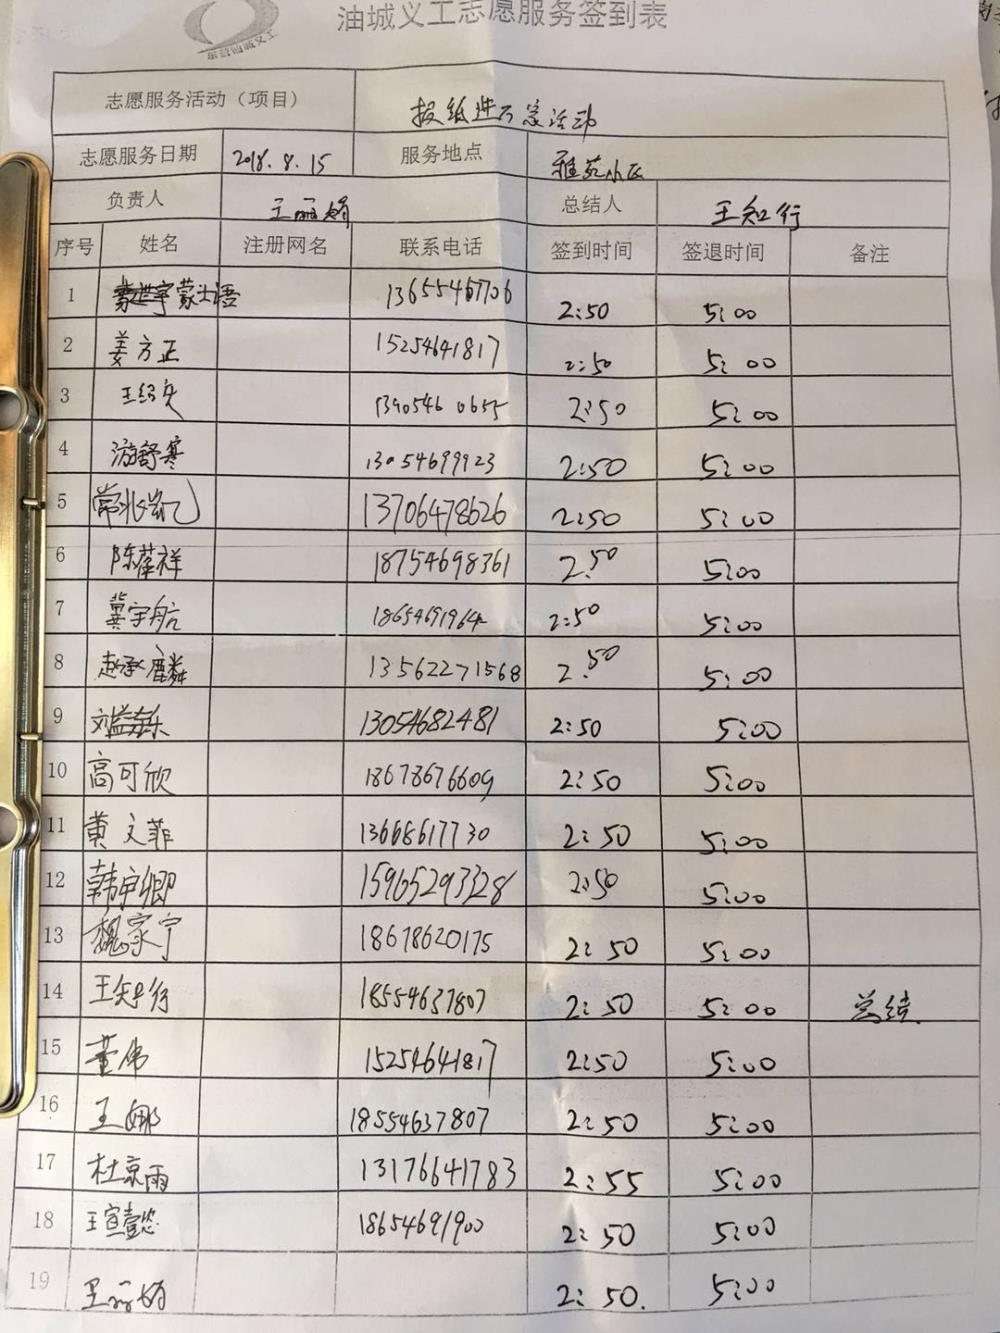 东营油城义工
油城义工志愿服务签到表
志愿服务活动（项目） 报纸进万家活动
志愿服务日期 2018.8.15 服务地点 雅苑小区
负责人 王丽娟 总结人 王知行
序号 姓名 注册网名 联系电话 签到时间 签退时间 备注
1 蒙士语 13655467706 2:50 5:00
2 姜方正 15254641817 2:50 5:00
3 13905460655 2:50 5:00
4 游舒寒 13054699923 2:50 5:00
5 13706478626 2:50 5:00
6 18754698361 2:50 5:00
7 冀宇航 18654691964 2:50 5:00
8 赵承麟 13562271568 2:50 5:00
9 13054682481 2:50 5:00
10 高可欣 18678676609 2:50 5:00
11 黄文菲 13668617730 2:50 5:00
12 15965293328 2:50 5:00
13 魏家宁 18678620175 2:50 5:00
14 王知行 18554637807 2:50 5:00 总结
15 董伟 15254641817 2:50 5:00
16 王娜 18554637807 2:50 5:00
17 杜京雨 13176641783 2:55 5:00
18 王宣懿 18654691900 2:50 5:00
19 王丽娟 2:50. 5:00